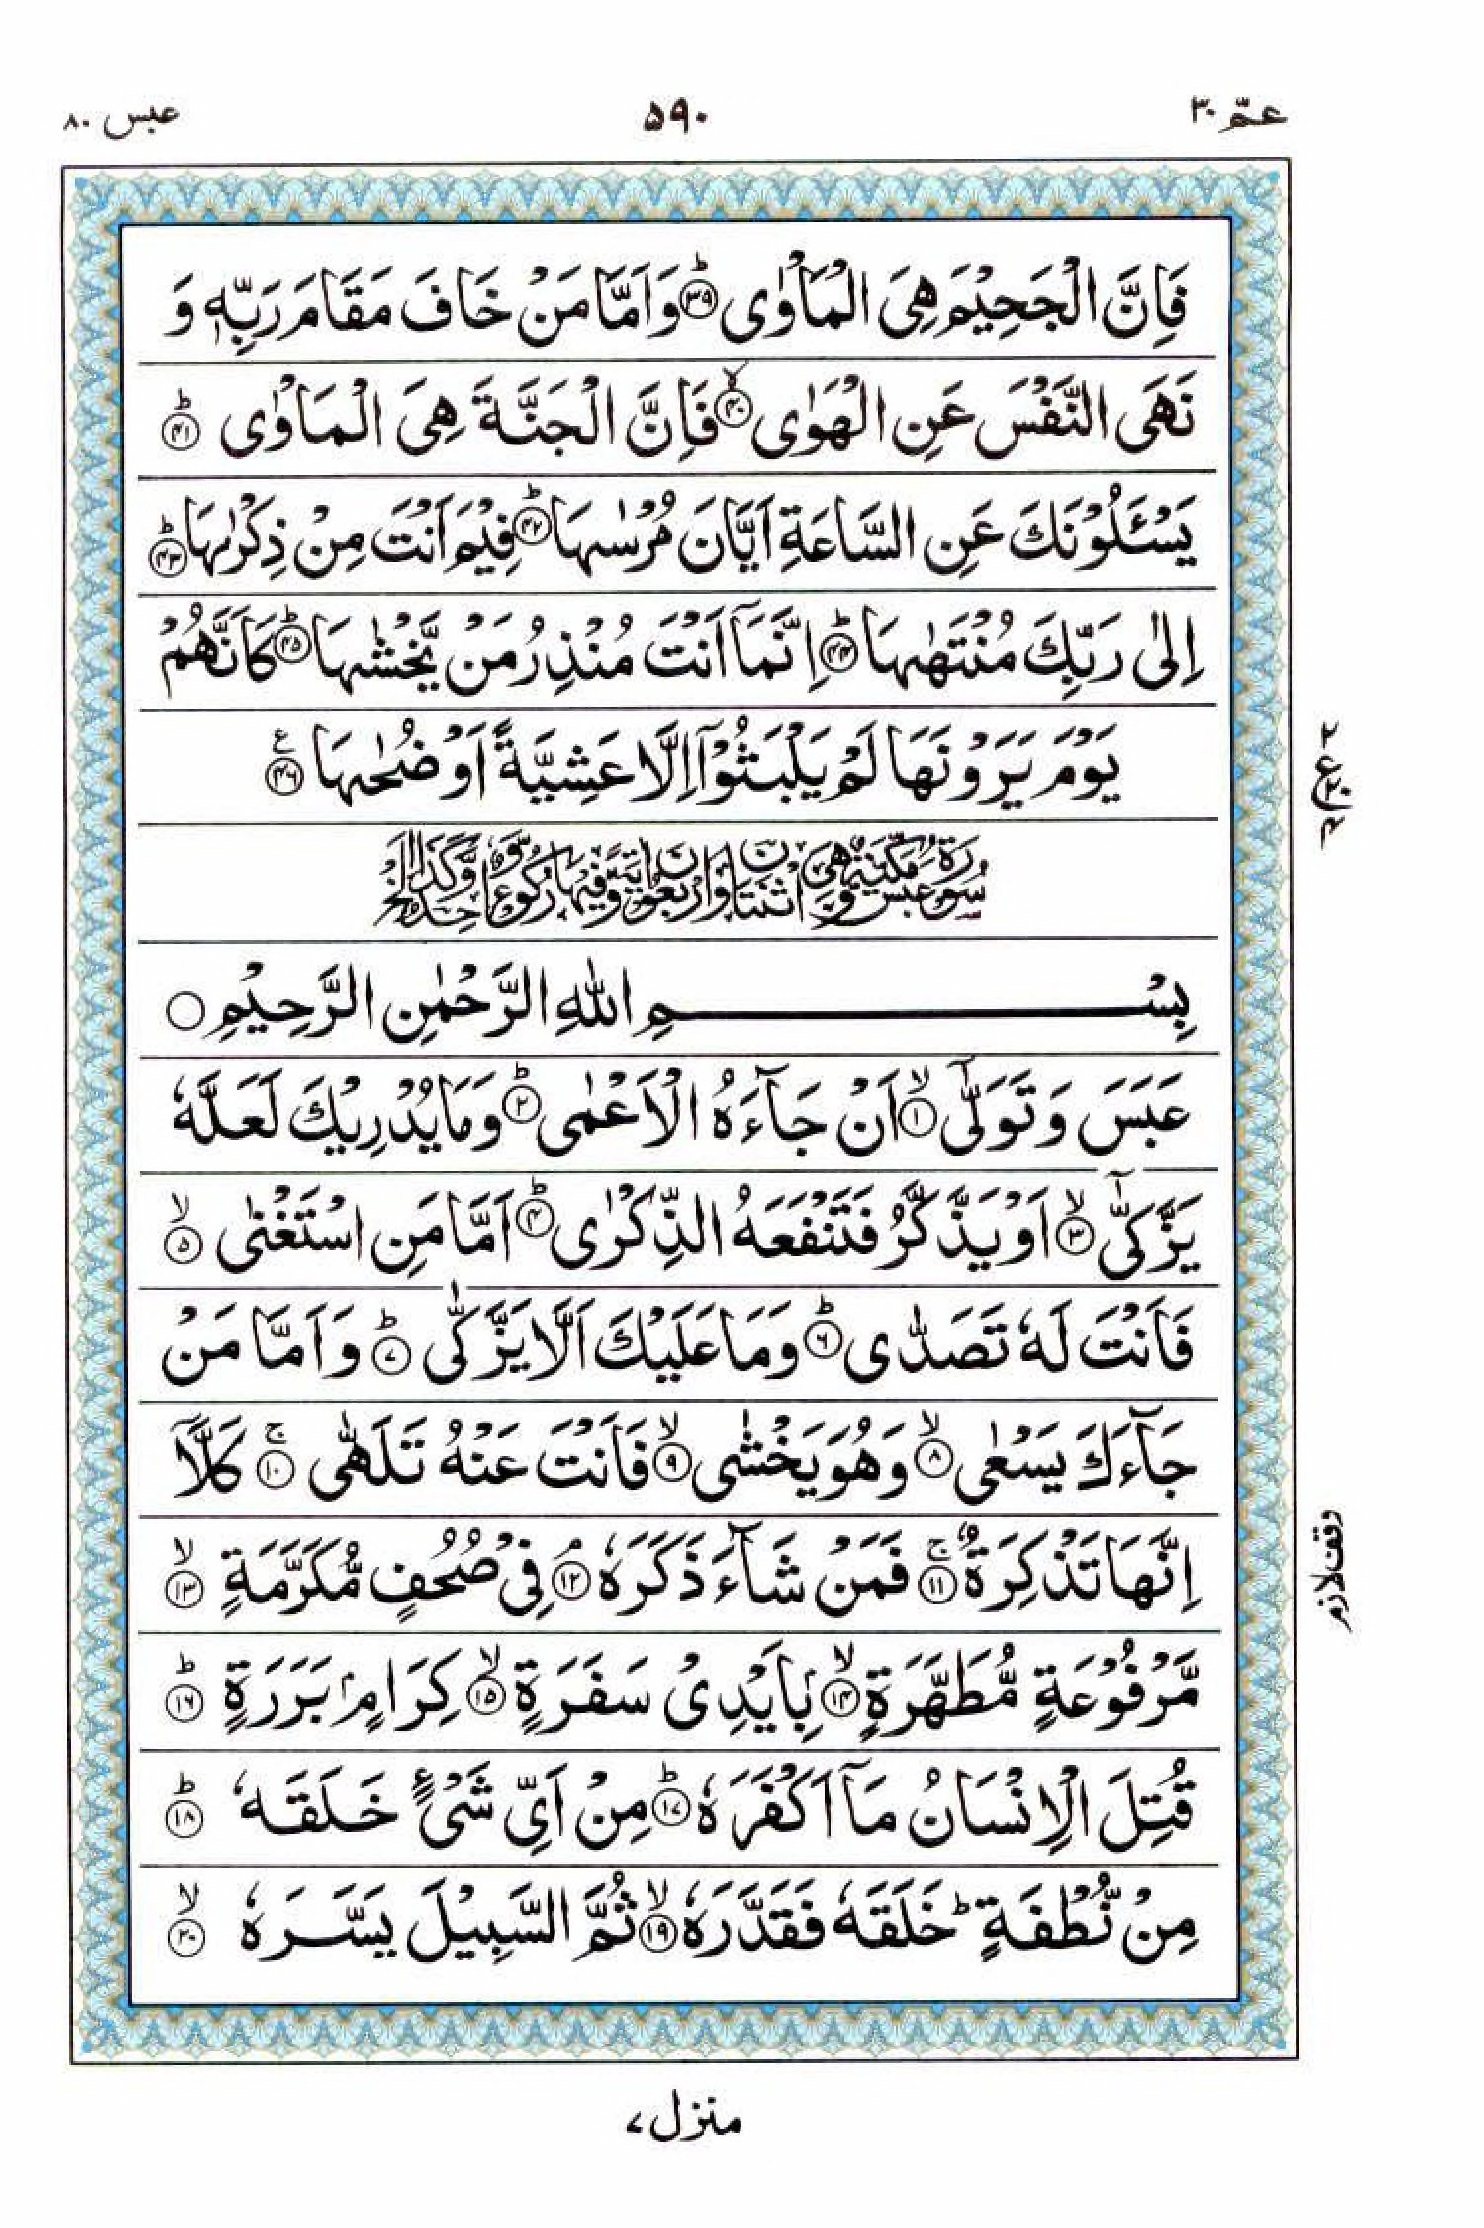 عمّ ٣٠
٥٩٠
عبس ٨٠
فَاِنَّ الْجَحِيْمَ هِىَ الْمَاْوٰى ؕ‏﴿۳۹﴾ وَاَمَّا مَنْ خَافَ مَقَامَ رَبِّهٖ وَ
نَهَى النَّفْسَ عَنِ الْهَوٰى ۙ‏﴿۴۰﴾ فَاِنَّ الْجَنَّةَ هِىَ الْمَاْوٰى ؕ‏﴿۴۱﴾
يَسْـَٔلُوْنَكَ عَنِ السَّاعَةِ اَيَّانَ مُرْسٰٮهَا ؕ‏﴿۴۲﴾ فِيْمَ اَنْتَ مِنْ ذِكْرٰٮهَا ؕ‏﴿۴۳﴾
اِلٰى رَبِّكَ مُنْتَهٰٮهَا ؕ‏﴿۴۴﴾ اِنَّمَاۤ اَنْتَ مُنْذِرُ مَنْ يَّخْشٰٮهَا ؕ‏﴿۴۵﴾ كَاَنَّهُمْ
يَوْمَ يَرَوْنَهَا لَمْ يَلْبَثُوْۤا اِلَّا عَشِيَّةً اَوْ ضُحٰٮهَا ﴿۴۶﴾ ع
سُوْرَةُ عَبَسَ مَكِّيَّةٌ وَّهِىَ اثْنَتَانِ وَاَرْبَعُوْنَ اٰيَةً وَّفِيْهَا رُكُوْعٌ وَّاحِدٌ
بِسْمِ اللّٰهِ الرَّحْمٰنِ الرَّحِيْمِ ○
عَبَسَ وَتَوَلّٰٓى ۙ‏﴿۱﴾ اَنْ جَآءَهُ الْاَعْمٰى ؕ‏﴿۲﴾ وَمَا يُدْرِيْكَ لَعَلَّهٗ
يَزَّكّٰٓى ۙ‏﴿۳﴾ اَوْ يَذَّكَّرُ فَتَنْفَعَهُ الذِّكْرٰى ؕ‏﴿۴﴾ اَمَّا مَنِ اسْتَغْنٰى ۙ‏﴿۵﴾
فَاَنْتَ لَهٗ تَصَدّٰى ؕ‏﴿۶﴾ وَمَا عَلَيْكَ اَلَّا يَزَّكّٰى ؕ‏﴿۷﴾ وَاَمَّا مَنْ
جَآءَكَ يَسْعٰى ۙ‏﴿۸﴾ وَهُوَ يَخْشٰى ۙ‏﴿۹﴾ فَاَنْتَ عَنْهُ تَلَهّٰى ۚ‏﴿۱۰﴾ كَلَّاۤ
اِنَّهَا تَذْكِرَةٌ ۚ‏﴿۱۱﴾ فَمَنْ شَآءَ ذَكَرَهٗ ۘ‏﴿۱۲﴾ فِىْ صُحُفٍ مُّكَرَّمَةٍ ۙ‏﴿۱۳﴾
مَّرْفُوْعَةٍ مُّطَهَّرَةٍ ۢ ۙ‏﴿۱۴﴾ بِاَيْدِىْ سَفَرَةٍ ۙ‏﴿۱۵﴾ كِرَامٍ ۢ بَرَرَةٍ ؕ‏﴿۱۶﴾
قُتِلَ الْاِنْسَانُ مَاۤ اَكْفَرَهٗ ؕ‏﴿۱۷﴾ مِنْ اَىِّ شَىْءٍ خَلَقَهٗ ؕ‏﴿۱۸﴾
مِنْ نُّطْفَةٍ ؕ خَلَقَهٗ فَقَدَّرَهٗ ۙ‏﴿۱۹﴾ ثُمَّ السَّبِيْلَ يَسَّرَهٗ ۙ‏﴿۲۰﴾
وقف لازم
منزل ۷